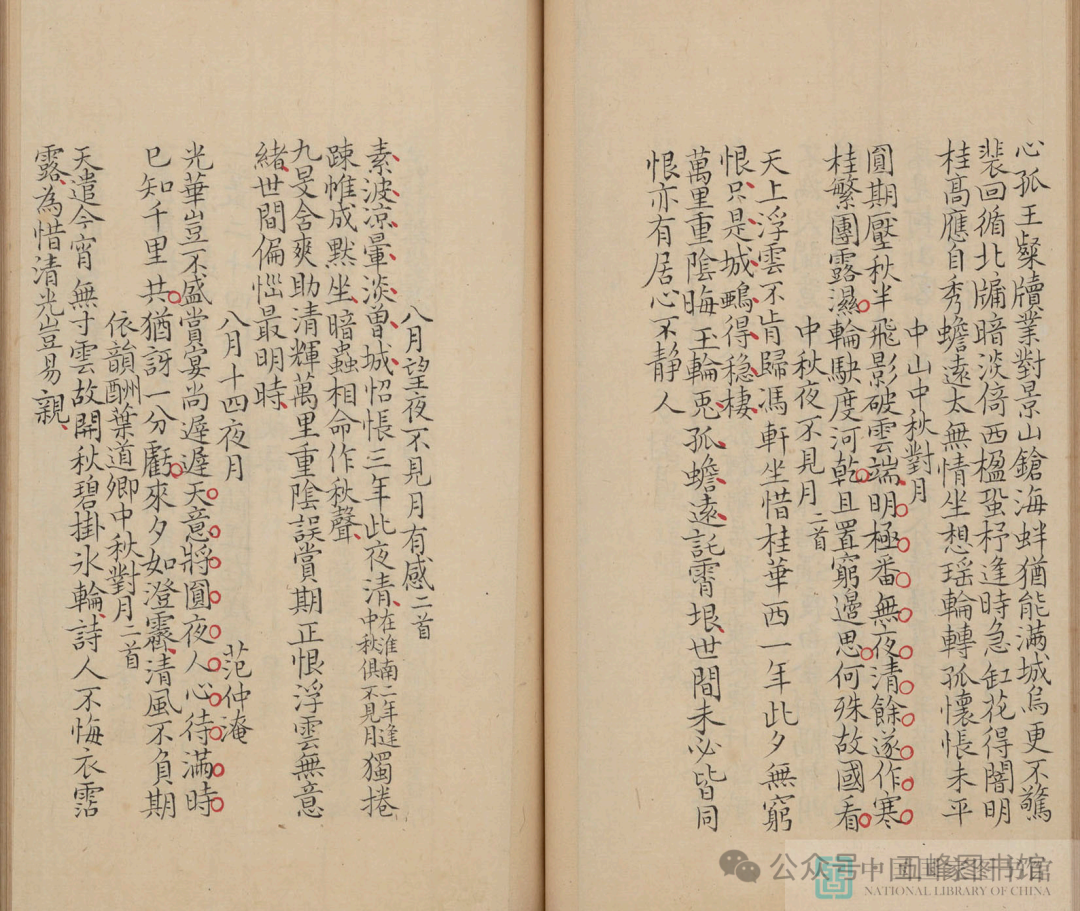 心孤王粲牘業對景山鎗海蚌猶能滿城烏更不驚
裴回循北牖暗淡倚西楹蛩杼逢時急缸花得闇明
桂高應自秀蟾遠太無情坐想瑶輪轉孤懷悵未平
中山中秋對月
圓期壓秋半飛影破雲端明極番無夜清餘遂作寒
桂繁團露濕輪駃度河乾且置窮邊思何殊故國看
中秋夜不見月二首
天上浮雲不肯歸馮軒坐惜桂華西一年此夕無窮
恨只是城鵶得穩棲
萬里重陰晦玉輪兎孤蟾遠託霄垠世間未必皆同
恨亦有居心不静人
八月望夜不見月有感二首
素波凉暈淡曾城怊悵三年此夜清在淮南二年逢中秋俱不見月獨捲
疎帷成黙坐暗蟲相命作秋聲
九旻含爽助清輝萬里重陰誤賞期正恨浮雲無意
緒世間偏惱最明時
八月十四夜月 范仲淹
光華豈不盛賞宴尚遲遲天意將圓夜人心待滿時
已知千里共猶訝一分虧來夕如澄霽清風不負期
依韻酬葉道卿中秋對月二首
天遣今宵無寸雲故開秋碧掛氷輪詩人不悔衣霑
露為惜清光豈易親
公众号·五峰图书馆
中国国家图书馆
NATIONAL LIBRARY OF CHINA